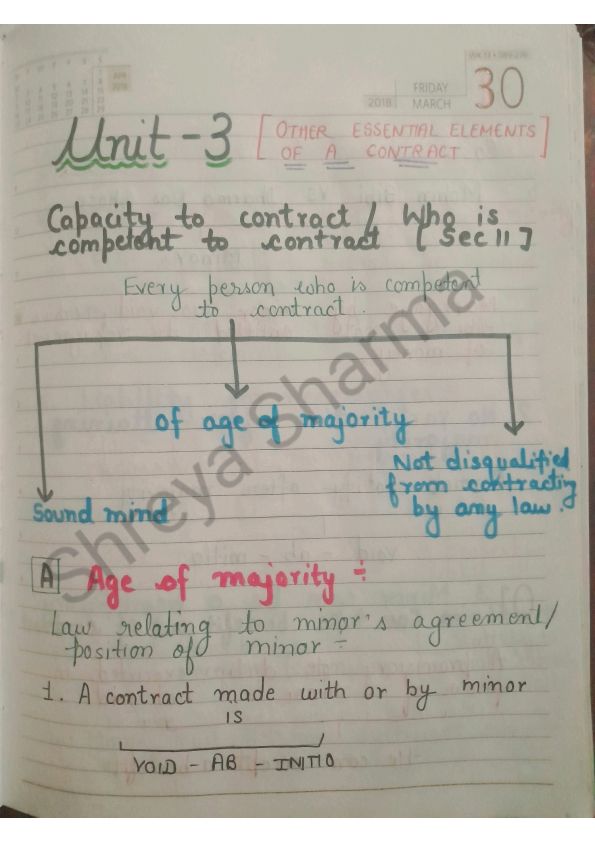 FRIDAY
2018 MARCH
30
Unit-3 [OTHER ESSENTIAL ELEMENTS
OF A CONTRACT]
Capacity to contract / Who is
competent to contract [Sec 11]
Every person who is competent
to contract.
of age of majority
Not disqualified
from contracting
by any law.
Sound mind
A Age of majority ÷
Law relating to minor's agreement/
position of minor ÷
1. A contract made with or by minor
IS
VOID - AB - INITIO
Shreya Sharma